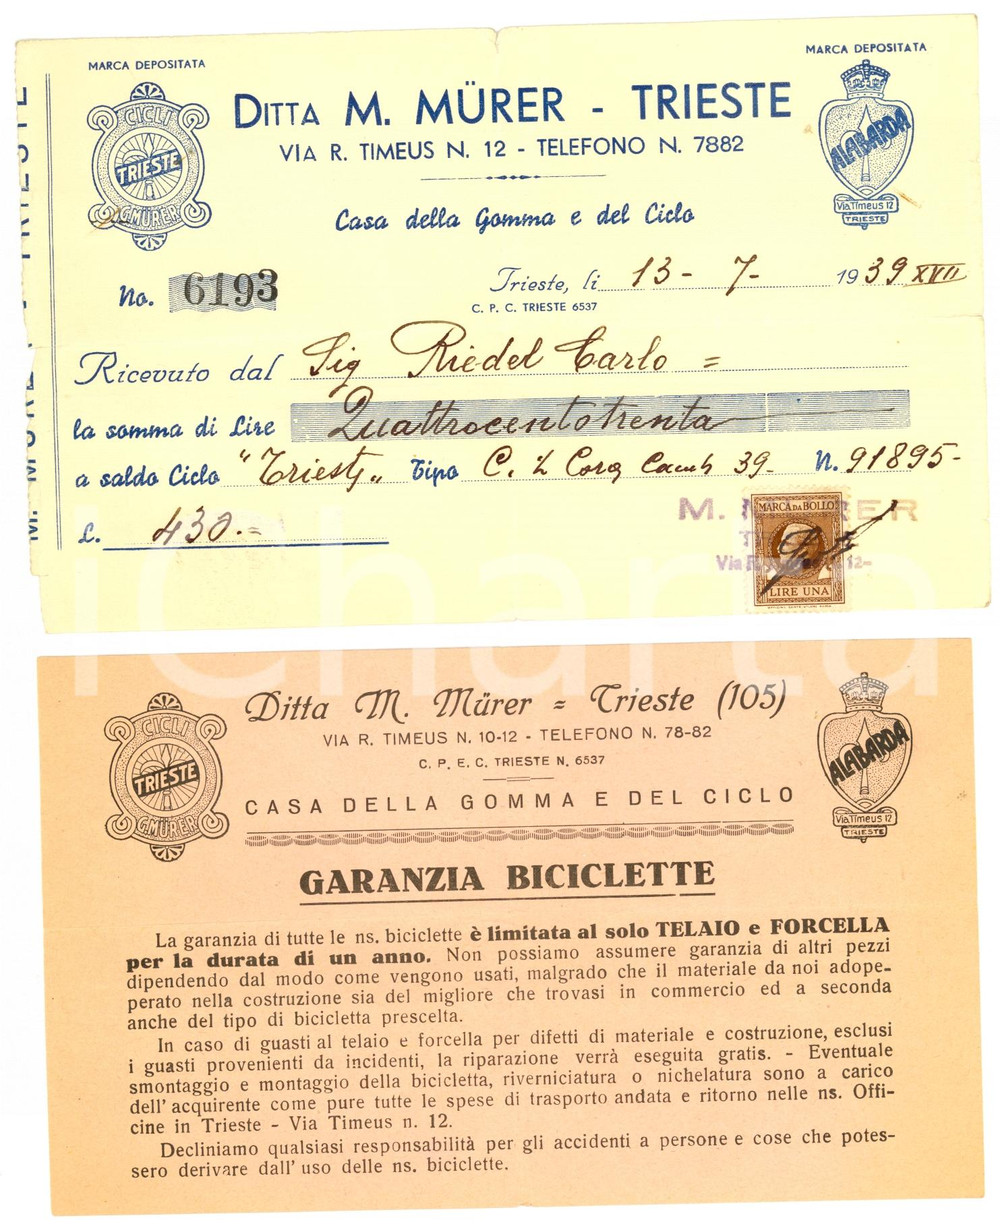 MARCA DEPOSITATA
MARCA DEPOSITATA
CICLI
TRIESTE
G. MÜRER
DITTA M. MÜRER - TRIESTE
VIA R. TIMEUS N. 12 - TELEFONO N. 7882
ALABARDA
Via Timeus 12
TRIESTE
Casa della Gomma e del Ciclo
No. 6193
Trieste, li 13 - 7 - 1939 XVII
C. P. C. TRIESTE 6537
Ricevuto dal Sig Riedel Carlo =
la somma di Lire Quattrocentotrenta
a saldo Ciclo "Trieste" Tipo C. Corsa Camb 39 - N. 91895 -
L. 430.=
M. MÜRER
MARCA DA BOLLO
LIRE UNA
CICLI
TRIESTE
G. MÜRER
Ditta M. Mürer = Trieste (105)
VIA R. TIMEUS N. 10-12 - TELEFONO N. 78-82
C. P. E. C. TRIESTE N. 6537
CASA DELLA GOMMA E DEL CICLO
ALABARDA
Via Timeus 12
TRIESTE
GARANZIA BICICLETTE
La garanzia di tutte le ns. biciclette è limitata al solo TELAIO e FORCELLA
per la durata di un anno. Non possiamo assumere garanzia di altri pezzi
dipendendo dal modo come vengono usati, malgrado che il materiale da noi adope-
perato nella costruzione sia del migliore che trovasi in commercio ed a seconda
anche del tipo di bicicletta prescelta.
In caso di guasti al telaio e forcella per difetti di materiale e costruzione, esclusi
i guasti provenienti da incidenti, la riparazione verrà eseguita gratis. - Eventuale
smontaggio e montaggio della bicicletta, riverniciatura o nichelatura sono a carico
dell' acquirente come pure tutte le spese di trasporto andata e ritorno nelle ns. Offi-
cine in Trieste - Via Timeus n. 12.
Decliniamo qualsiasi responsabilità per gli accidenti a persone e cose che potes-
sero derivare dall' uso delle ns. biciclette.
icharta